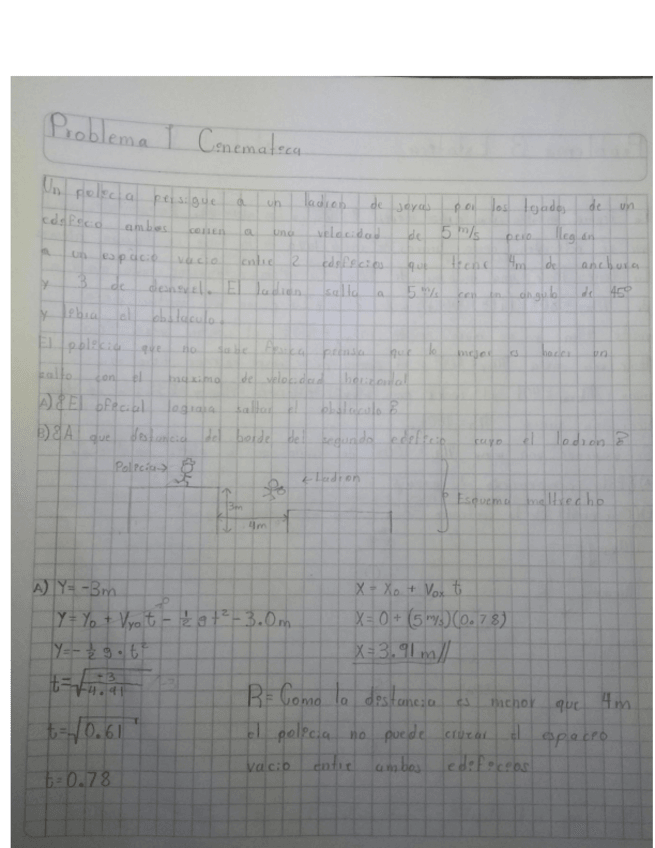 Problema 1 Cenemateca
Un polecia persigue a un ladron de joyas por los tejados de un
edefeceo ambos corren a una velocidad de 5 m/s pero llegan
a un espacio vacio entre 2 edefecios que tiene 4m de anchura
y 3 de desnevel. El ladron salta a 5 m/s con un angulo de 45°
y lebra el obstaculo.
El polecia que no sabe feseca piensa que lo mejor es hacer un
salto con el maximo de velocidad horizontal
A) ¿El ofecial lograra saltar el obstaculo?
B) ¿A que destancia del borde del segundo edefecio cayo el ladron?
Polecia→
←Ladron
3m
4m
Esquema maltrecho
A) Y= -3m
Y= Y₀ + Vy₀ t - ½ g t² - 3.0m
Y= - ½ g · t²
t= √(-3 / -4.91)
t= √0.61
t= 0.78
X= X₀ + V₀ₓ t
X= 0 + (5 m/s)(0.78)
X= 3.91 m//
R= Como la destancia es menor que 4m
el polecia no puede cruzar el espaceo
vacio entre ambos edefeceos